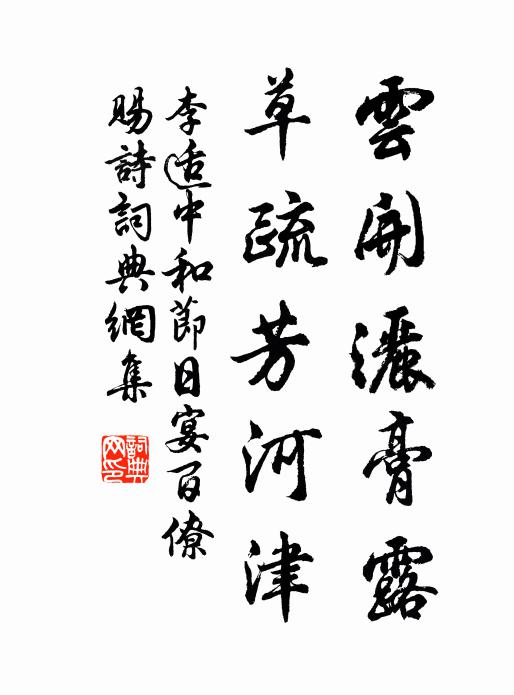 雲開灑膏露
草疏芳河津
李适中和節日宴百僚
賜詩詞典網集
詞典
网印